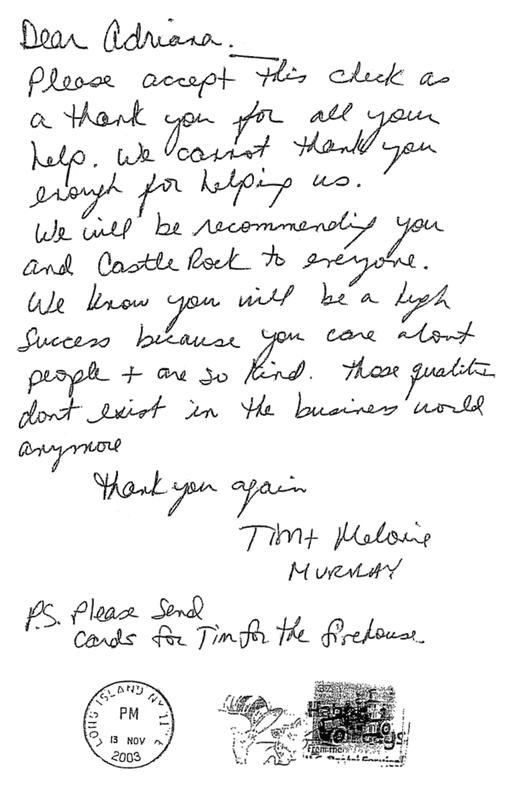 Dear Adriana.
Please accept this check as
a thank you for all your
help. We cannot thank you
enough for helping us.
We will be recommending you
and Castle Rock to everyone.
We know you will be a high
success because you care about
people + are so kind. Those qualities
dont exist in the business world
anymore
Thank you again
Tim + Melanie
MURRAY
P.S. Please Send
cards for Tim for the firehouse.
LONG ISLAND NY
PM
13 NOV
2003